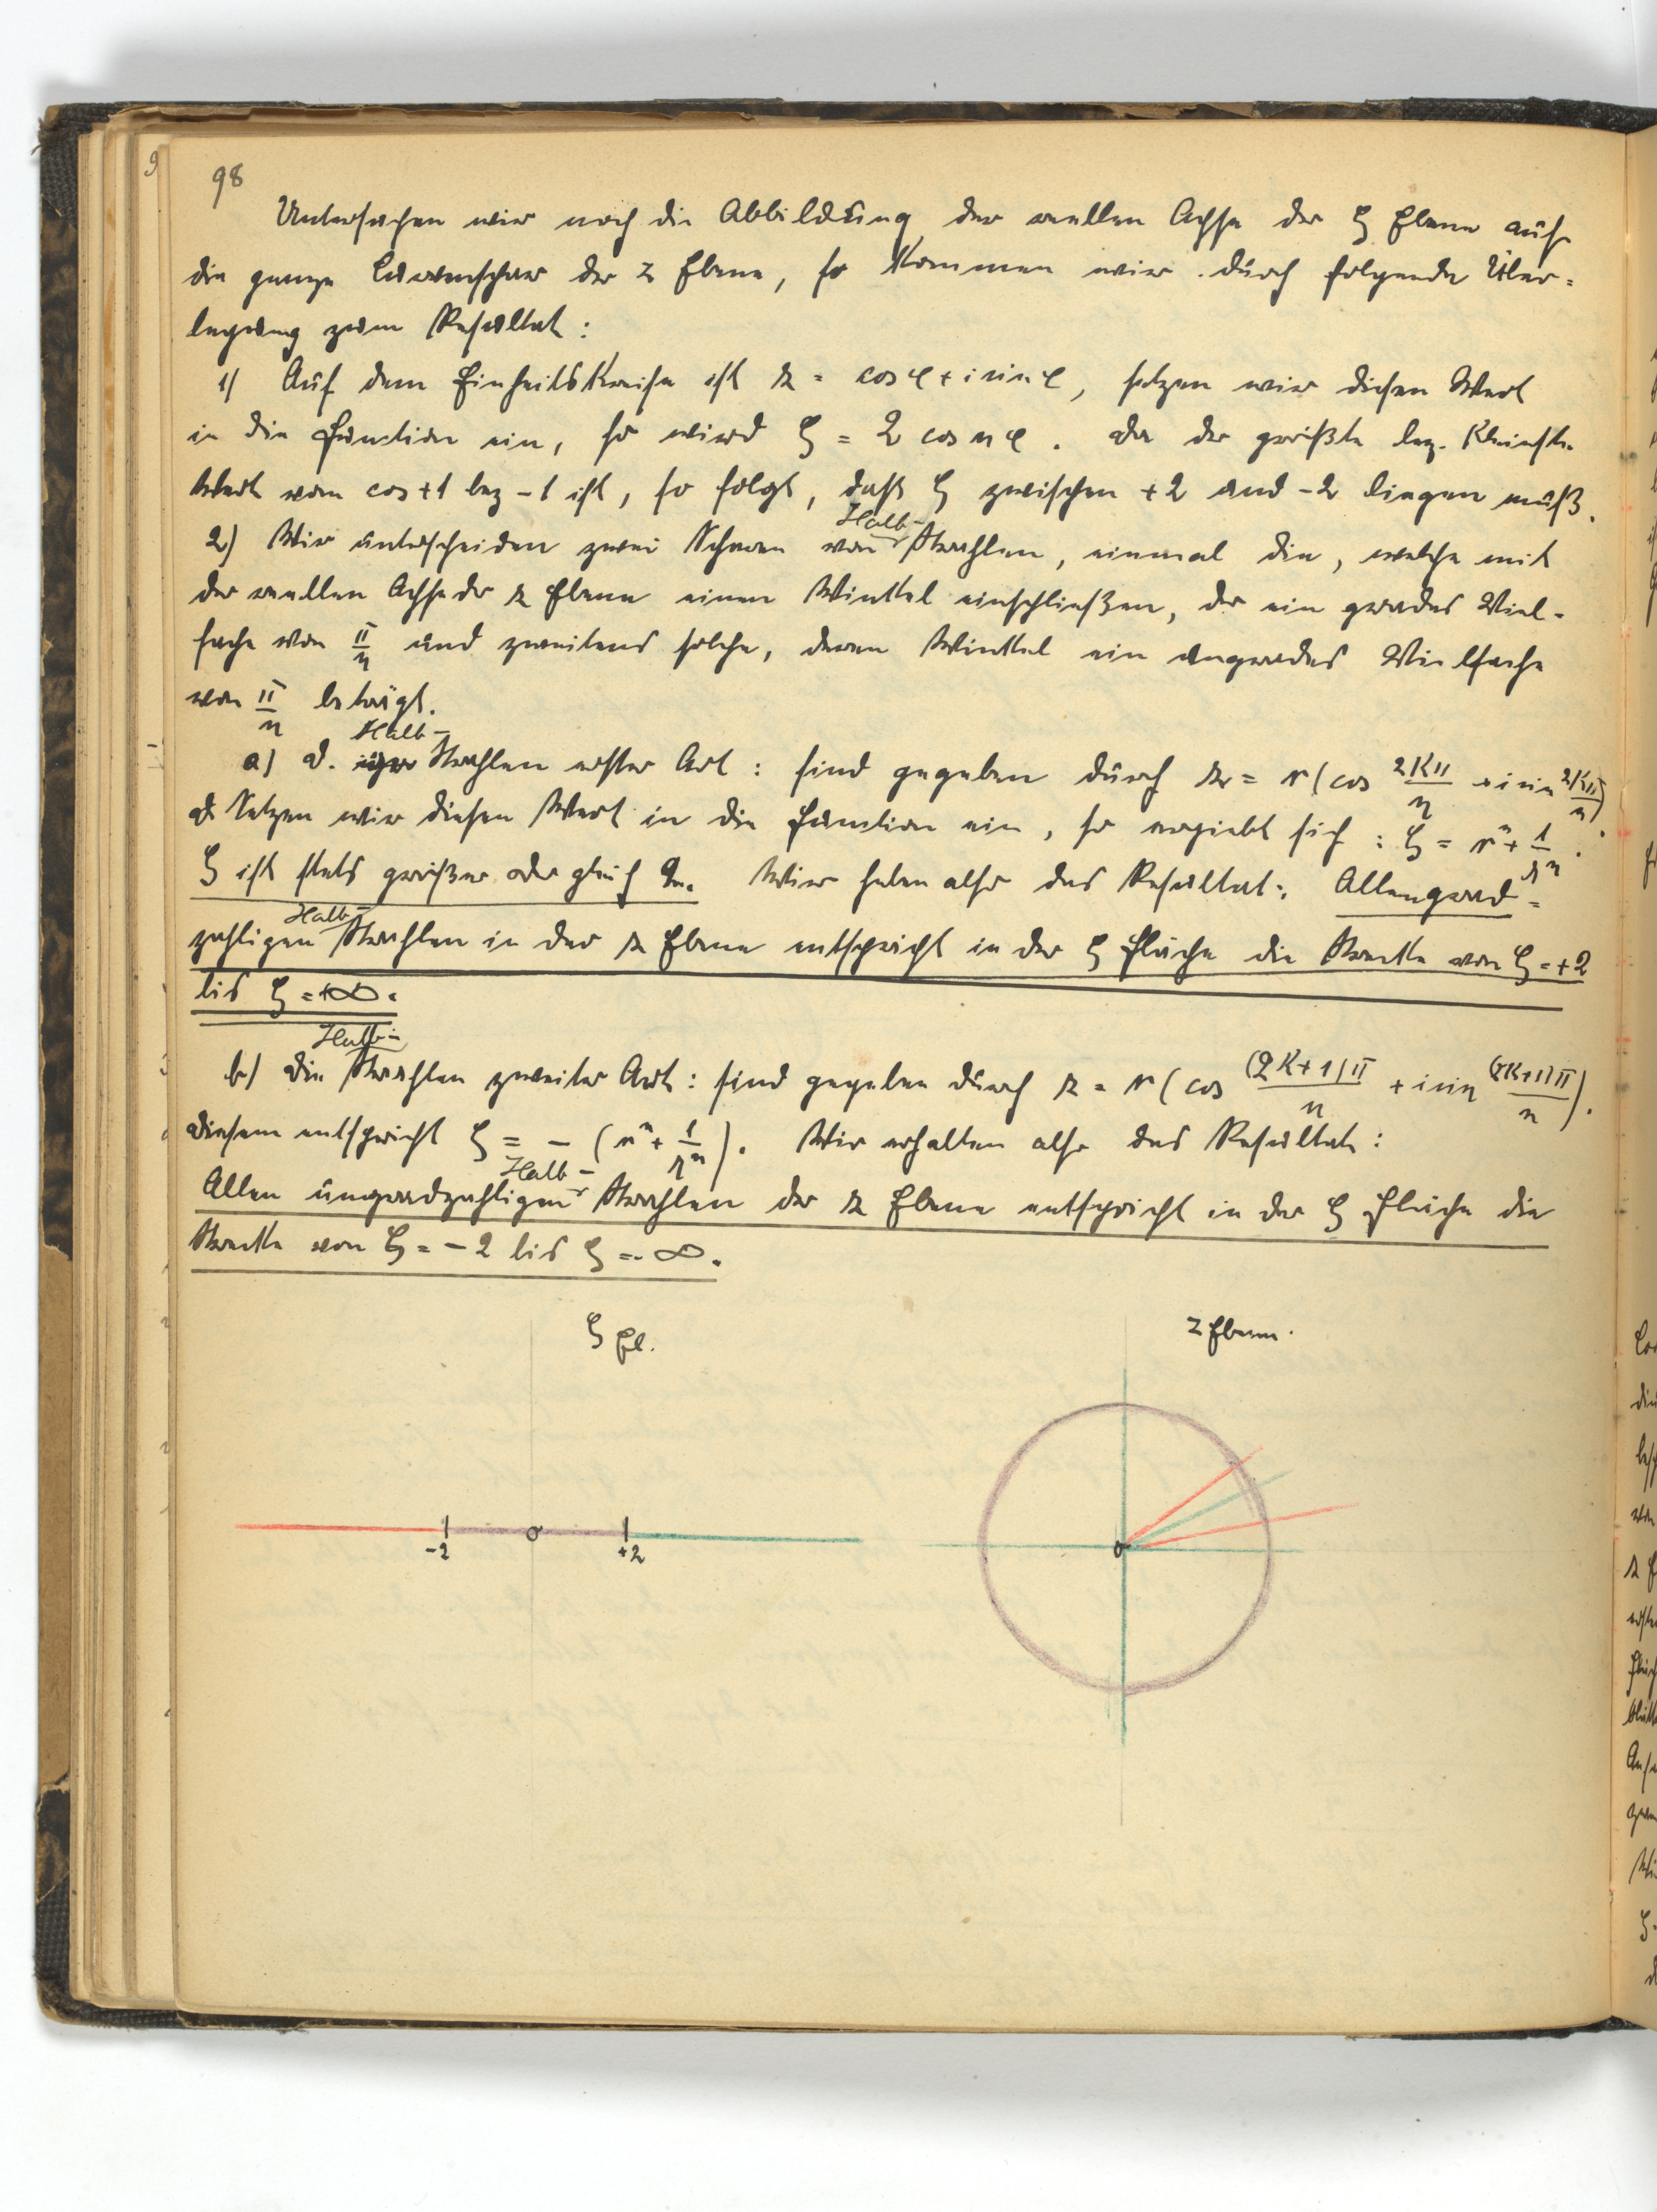 98
Untersuchen wir noch die Abbildung der reellen Achse der ζ Ebene auf
die ganze Curvenschar der z Ebene, so kommen wir durch folgende Über-
legung zum Resultat:
1) Auf dem Einheitskreise ist z = cos φ + i sin φ, setzen wir diesen Wert
in die Function ein, so wird ζ = 2 cos nφ. Da der größte bez. kleinste
Wert vom cos +1 bez -1 ist, so folgt, daß ζ zwischen +2 und -2 liegen muß.
Halb-
2) Wir unterscheiden zwei Scharen von Strahlen, einmal die, welche mit
der reellen Achse der z Ebene einen Winkel einschließen, der ein grades Viel-
fache von π/n und zweitens solche, deren Winkel ein ungrades Vielfache
von π/n beträgt.
Halb-
a) D. Strahlen erster Art: sind gegeben durch z = r (cos 2Kπ/n + i sin 2Kπ/n).
Setzen wir diesen Wert in die Function ein, so ergiebt sich: ζ = rⁿ + 1/rⁿ.
ζ ist stets größer oder gleich 2. Wir haben also das Resultat: Allen grad-
Halb-
zahligen Strahlen in der z Ebene entspricht in der ζ Fläche die Strecke von ζ = +2
bis ζ = +∞.
Halb-
b) Die Strahlen zweiter Art: sind gegeben durch z = r (cos (2K+1)π/n + i sin (2K+1)π/n).
Diesem entspricht ζ = - (rⁿ + 1/rⁿ). Wir erhalten also das Resultat:
Halb-
Allen ungradzahligen Strahlen der z Ebene entspricht in der ζ Fläche die
Strecke von ζ = -2 bis ζ = -∞.
ζ Fl.
z Ebene.
-2
0
+2
0